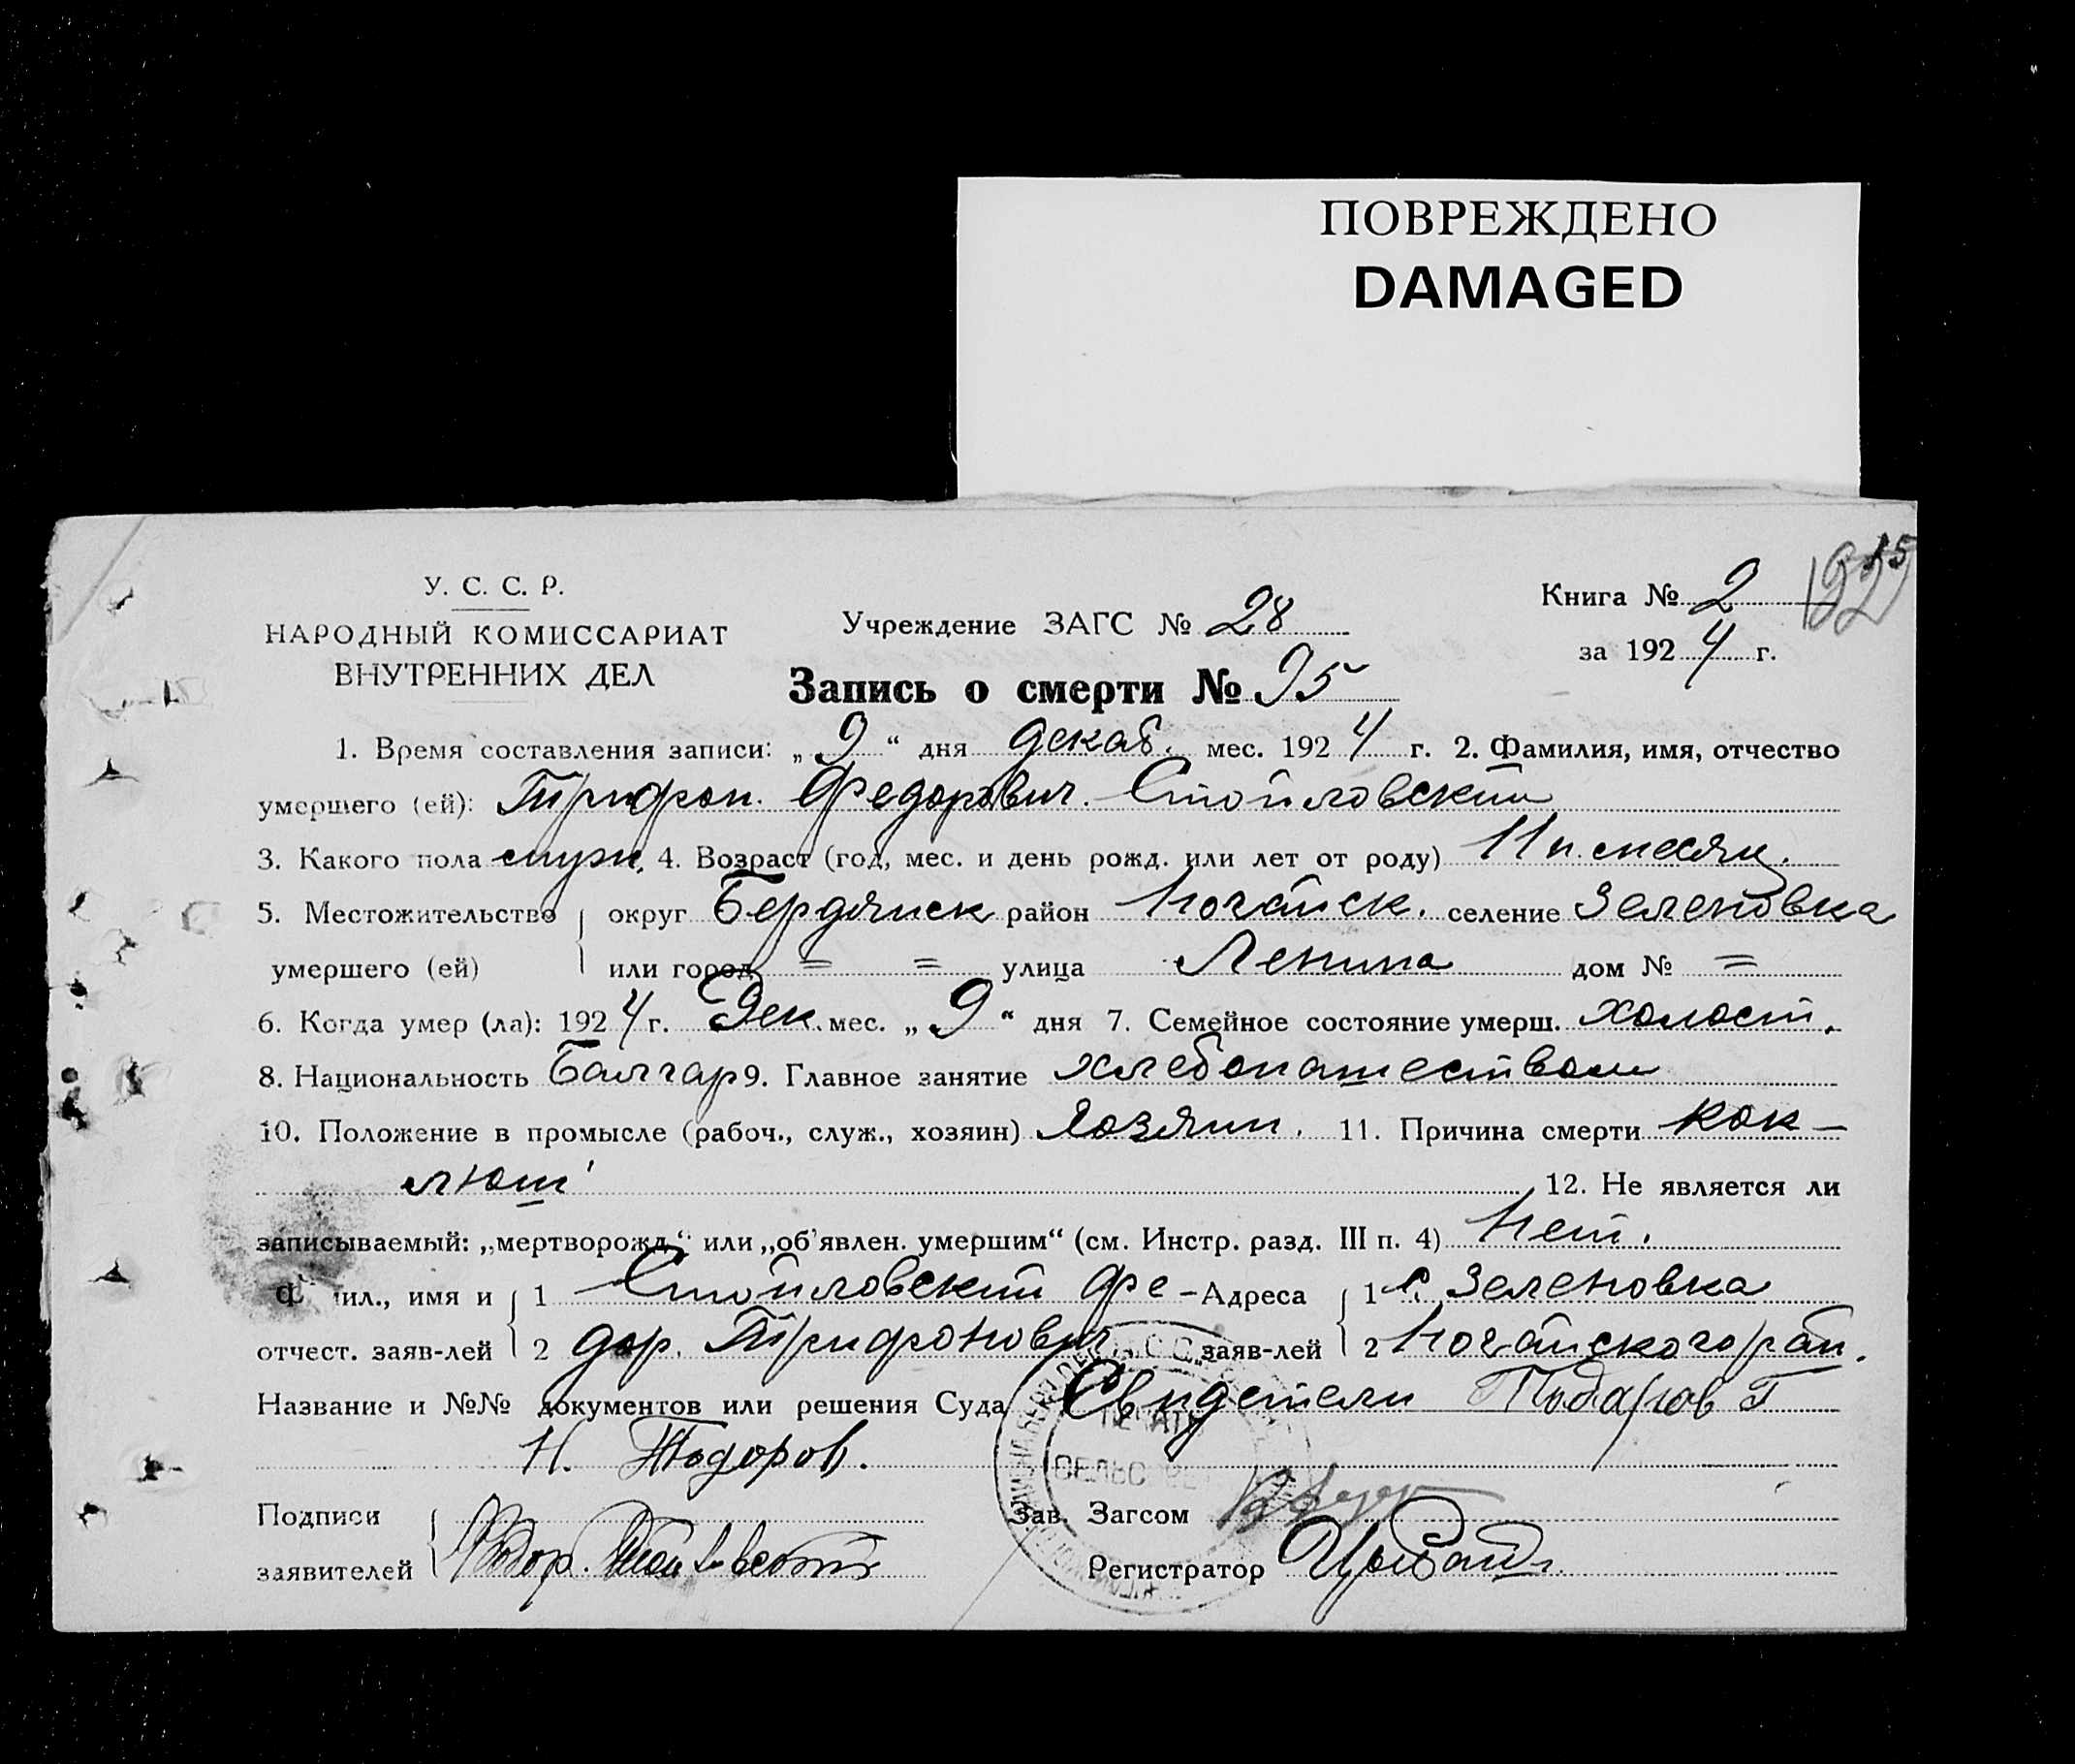 ПОВРЕЖДЕНО
DAMAGED
У. С. С. Р.
НАРОДНЫЙ КОМИССАРИАТ
ВНУТРЕННИХ ДЕЛ
Учреждение ЗАГС № 28
Книга № 2
за 1924 г.
Запись о смерти № 95
1. Время составления записи: „9“ дня декаб. мес. 1924 г. 2. Фамилия, имя, отчество
умершего (ей): Трифон. Федорович. Стойловский
3. Какого пола мужж. 4. Возраст (год, мес. и день рожд. или лет от роду) 11 п. месяц.
5. Местожительство округ Бердянск район Ногайск. селение Зеленовка
умершего (ей) или город = = улица Ленина дом № =
6. Когда умер (ла): 1924 г. Дек. мес. „9“ дня 7. Семейное состояние умерш. холост.
8. Национальность Балгар 9. Главное занятие хлебопашеством
10. Положение в промысле (рабоч., служ., хозяин) Хозяин. 11. Причина смерти Кок-
люш 12. Не является ли
записываемый: „мертворожд.“ или „об'явлен. умершим“ (см. Инстр. разд. III п. 4) Нет.
Ф ил., имя и 1 Стойловский Фе- Адреса 1 с. Зеленовка
отчест. заяв-лей 2 дор. Трифонович заяв-лей 2 Ногайского рай.
Название и №№ документов или решения Суда Свидетели Тодаров Г
Н. Тодоров.
Подписи Зав. Загсом
заявителей Фодор. Регистратор